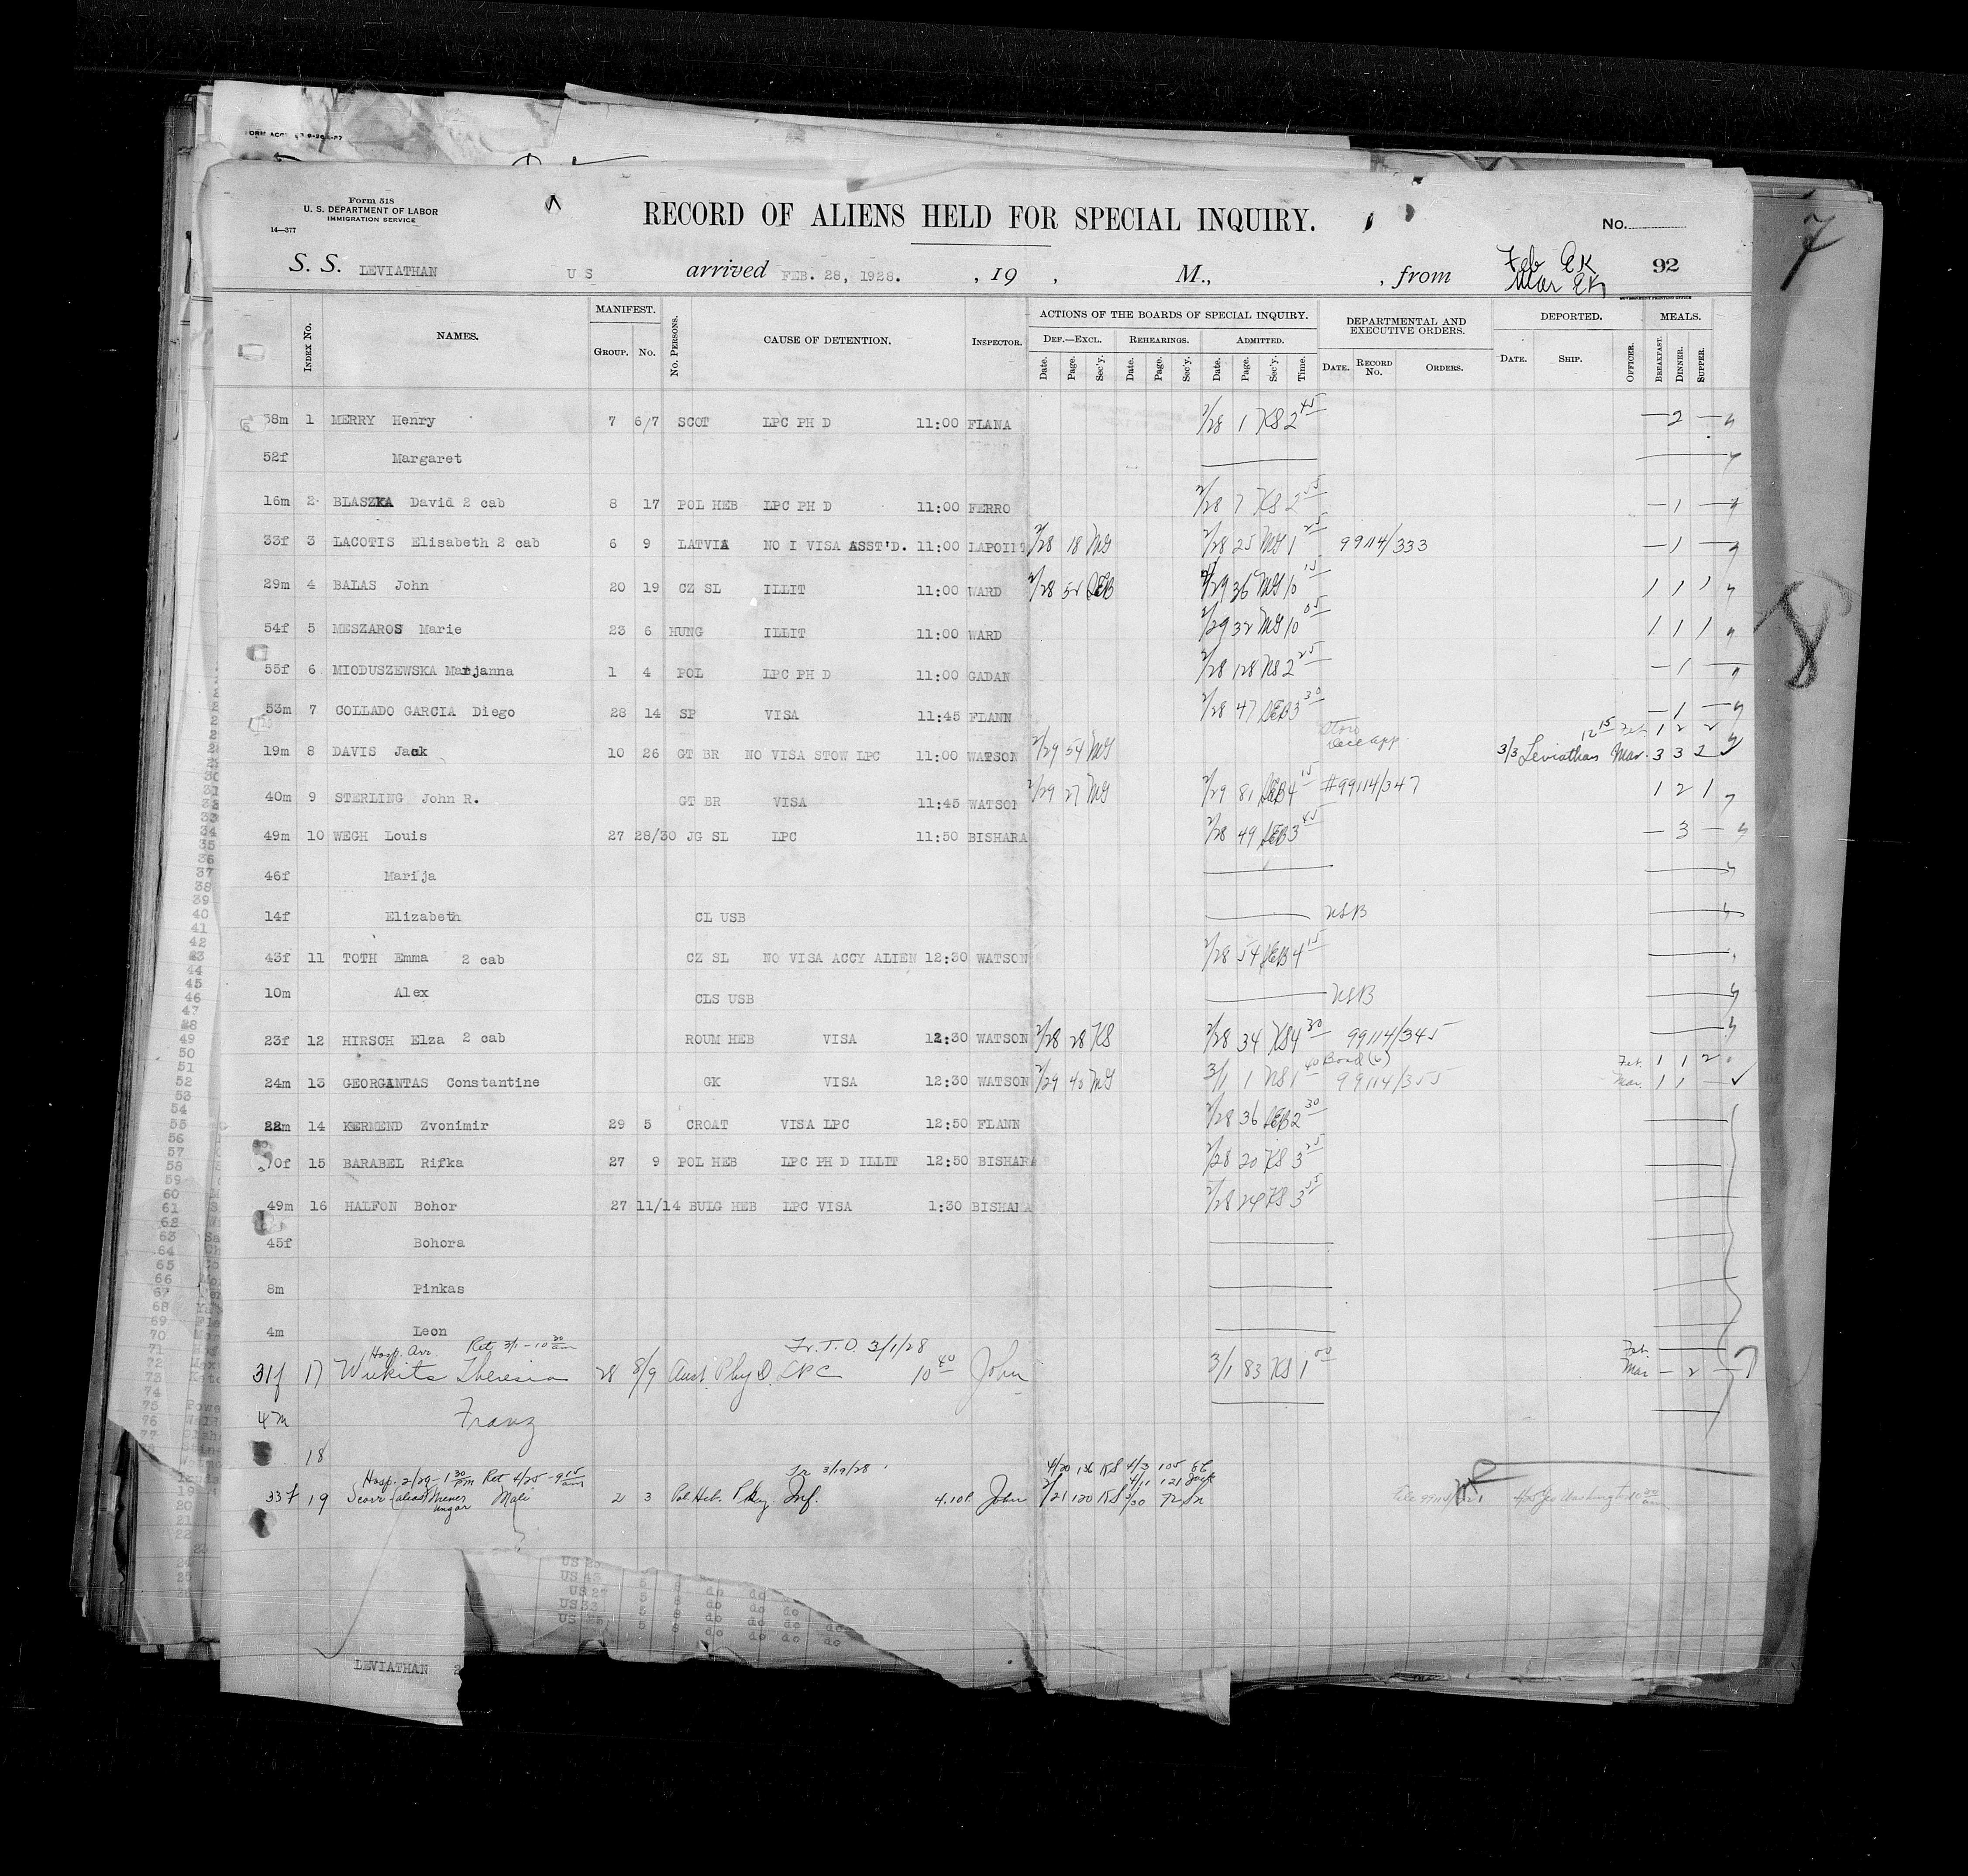 FORM ACC
Form 518
U. S. DEPARTMENT OF LABOR
IMMIGRATION SERVICE
14—377
RECORD OF ALIENS HELD FOR SPECIAL INQUIRY.
No.
7
S. S. LEVIATHAN US arrived FEB. 28, 1928. , 19 , M., , from Feb EK 92
Mar EK
GOVERNMENT PRINTING OFFICE
INDEX No. NAMES. MANIFEST. GROUP. No. No. PERSONS. CAUSE OF DETENTION. INSPECTOR. ACTIONS OF THE BOARDS OF SPECIAL INQUIRY. DEPARTMENTAL AND EXECUTIVE ORDERS. DEPORTED. MEALS.
DEF.—EXCL. REHEARINGS. ADMITTED.
Date. Page. Sec'y. Date. Page. Sec'y. Date. Page. Sec'y. Time. DATE. RECORD No. ORDERS. DATE. SHIP. OFFICER. BREAKFAST. DINNER. SUPPER.
38m 1 MERRY Henry 7 6/7 SCOT LPC PH D 11:00 FLANA 2/28 1 KS 2 45 — 2 —
52f Margaret
16m 2 BLASZKA David 2 cab 8 17 POL HEB LPC PH D 11:00 FERRO 2/28 7 KS 2 55 — 1 —
33f 3 LACOTIS Elisabeth 2 cab 6 9 LATVIA NO I VISA ASST'D. 11:00 LAPOINT 2/28 18 MG 2/28 25 MG 1 25 99114/333 — 1 —
29m 4 BALAS John 20 19 CZ SL ILLIT 11:00 WARD 2/28 SEB 2/29 36 MG 10 15 1 1 1
54f 5 MESZAROS Marie 23 6 HUNG ILLIT 11:00 WARD 2/29 32 MG 10 05 1 1 1
55f 6 MIODUSZEWSKA Marjanna 1 4 POL LPC PH D 11:00 GADAN 2/28 128 KS 2 25 — 1 —
53m 7 COLLADO GARCIA Diego 28 14 SP VISA 11:45 FLANN 2/28 47 SEB 3 30 — 1 —
Stow 12 15 Feb. 1 2 2
19m 8 DAVIS Jack 10 26 GT BR NO VISA STOW LPC 11:00 WATSON 2/29 54 MG 3/3 Leviathan Mar. 3 3 2
40m 9 STERLING John R. GT BR VISA 11:45 WATSON 2/29 27 MG 2/29 81 SEB 4 15 #99114/347 1 2 1
49m 10 WEGH Louis 27 28/30 JG SL LPC 11:50 BISHARA 2/28 49 SEB 3 45 — 3 —
8
46f Marija
14f Elizabeth CL USB USB
43f 11 TOTH Emma 2 cab CZ SL NO VISA ACCY ALIEN 12:30 WATSON 2/28 54 SEB 4 15
10m Alex CLS USB USB
23f 12 HIRSCH Elza 2 cab ROUM HEB VISA 12:30 WATSON 2/28 28 KS 2/28 34 KS 4 30 99114/345
Bond Feb. 1 1 2
24m 13 GEORGANTAS Constantine GK VISA 12:30 WATSON 2/29 40 MG 3/1 1 KS 1 40 99114/355 Mar. 1 1 —
22m 14 KERMEND Zvonimir 29 5 CROAT VISA LPC 12:50 FLANN 2/28 36 SEB 2 30
0f 15 BARABEL Rifka 27 9 POL HEB LPC PH D ILLIT 12:50 BISHARA 2/28 20 KS 3 25
49m 16 HALFON Bohor 27 11/14 BULG HEB LPC VISA 1:30 BISHARA 2/28 24 KS 3 55
45f Bohora
8m Pinkas
4m Leon
Hosp. Arr. Ret 3/1 - 10 30 am Tr. T. O. 3/1/28 Feb.
31f 17 Wukits Theresia 28 8/9 Aust Phy D. LPC 10 40 John 3/1 83 KS 1 00 Mar — 2 —
4m Franz
18
Hosp. 2/29 - 1 30 PM Ret 4/25 - 9 15 am Tr 3/19/28 4/20 136 KS 4/3 105
4/11 121
33f 19 (alias) Ungar Mali 2 3 Pol Heb. Phy. Inf. 4.10P. John 2/21 120 KS 3/30 72 4/25 Geo Washington
US 26 5 8 do do
US 43 5 8 do do
US 27 5 8 do do
US 33 5 8 do do do
US 25 5 8 do do do
LEVIATHAN 2